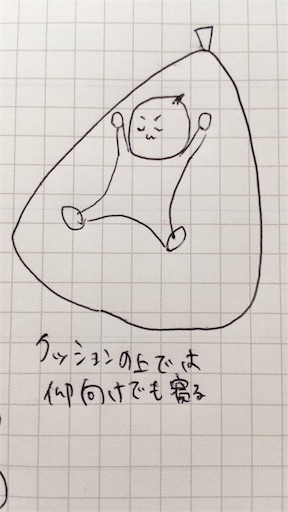 クッションの上では
仰向けでも寝る